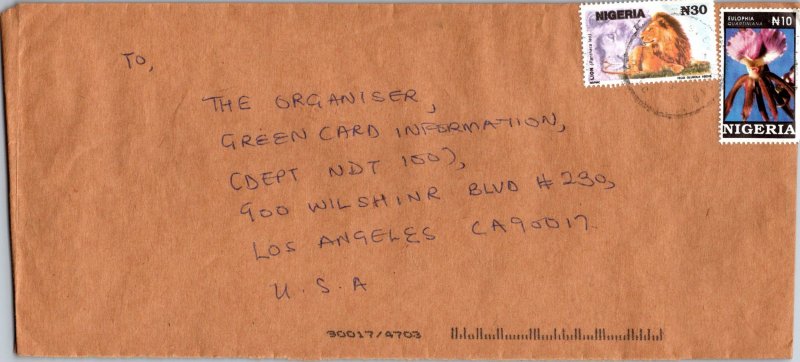 NIGERIA ₦30
LION (Panthera leo)
EULOPHIA
QUARTINIANA ₦10
NIGERIA
To,
THE ORGANISER,
GREEN CARD INFORMATION,
(DEPT NDT 100),
900 WILSHINR BLVD # 230,
LOS ANGELES CA90017
U.S.A
90017/4703